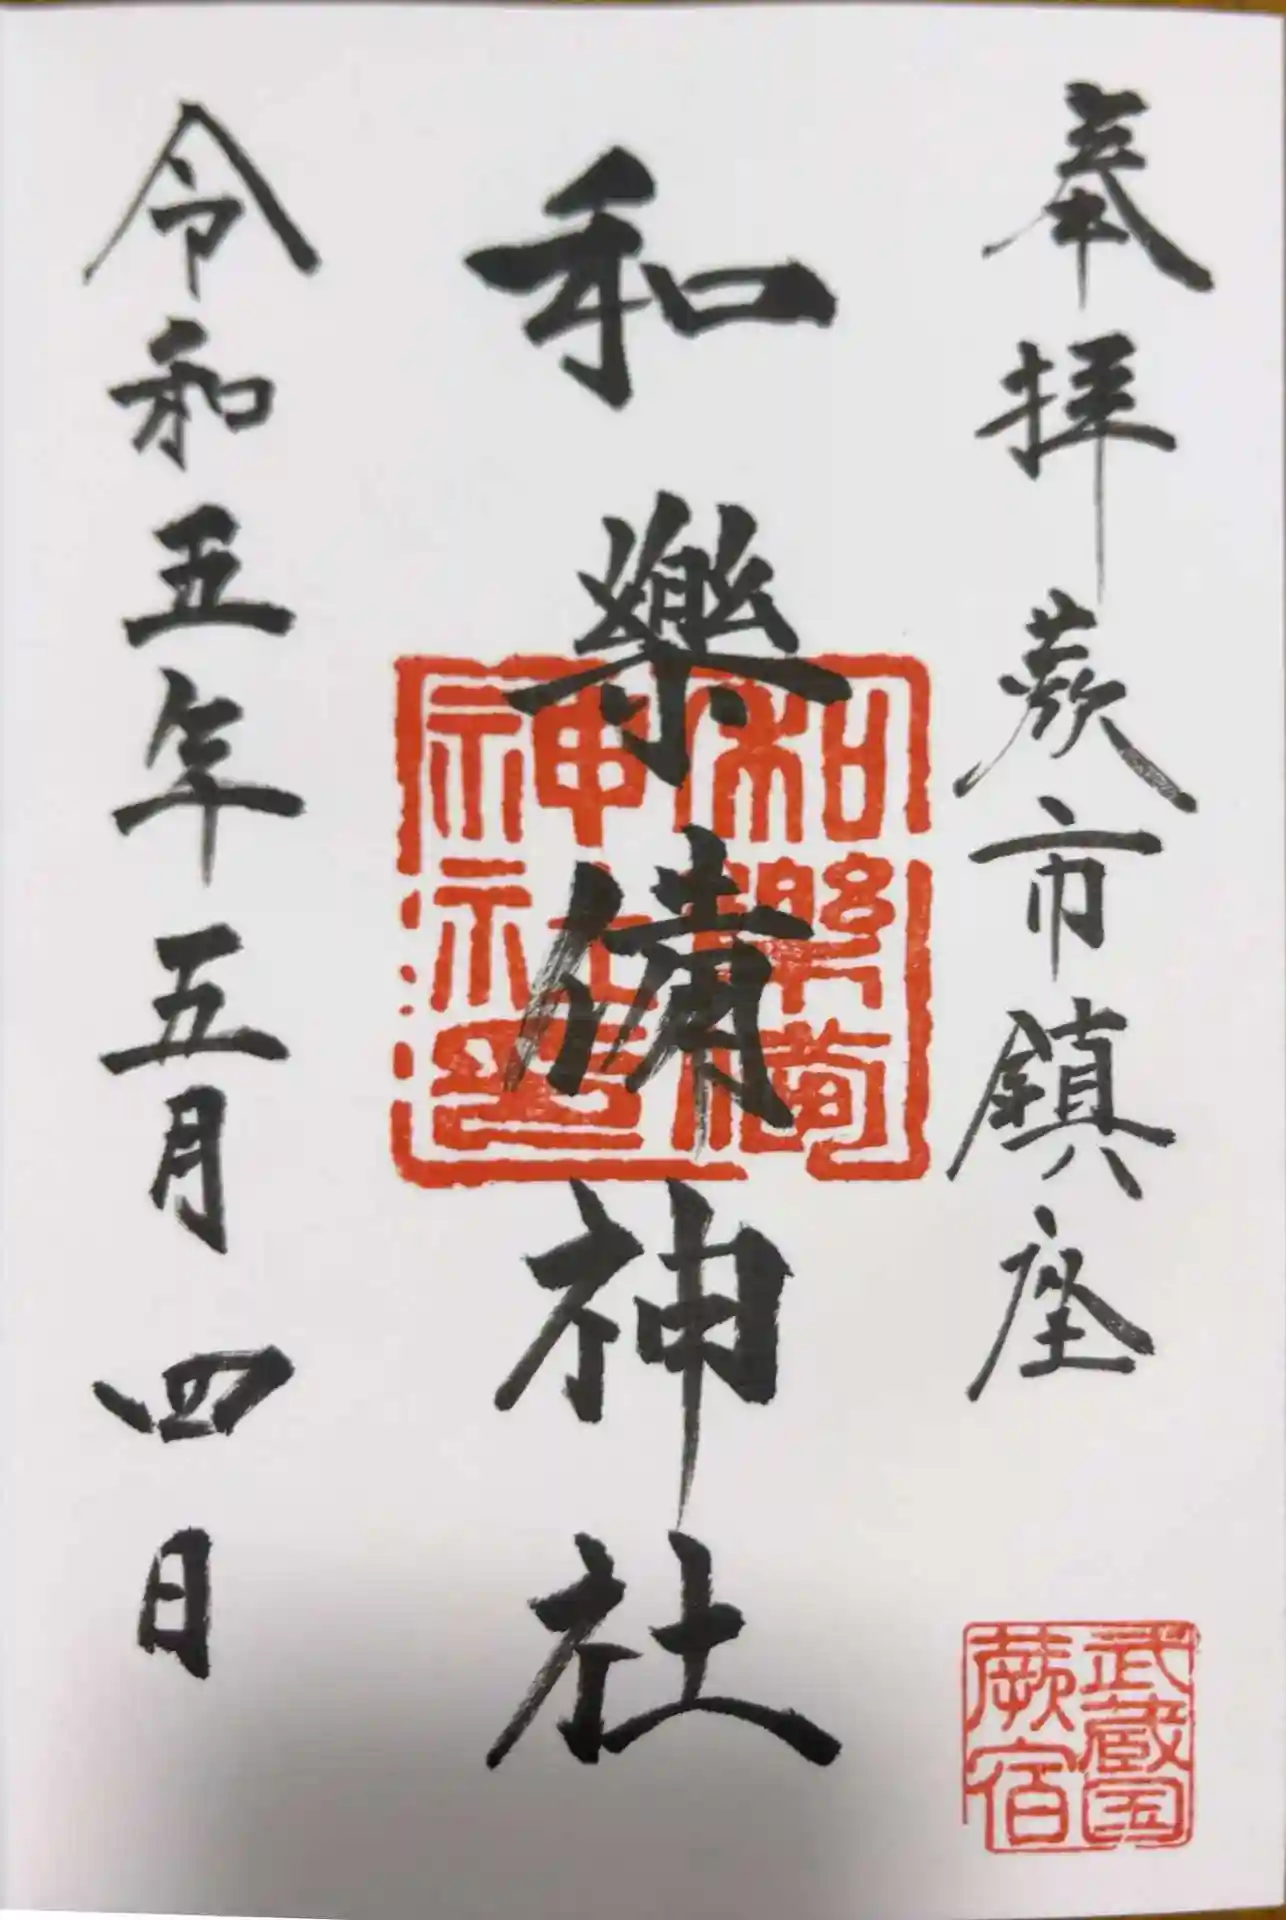 奉拝 蕨市鎮座
和樂備神社
令和五年五月四日
和樂備
神社
武蔵国
蕨宿